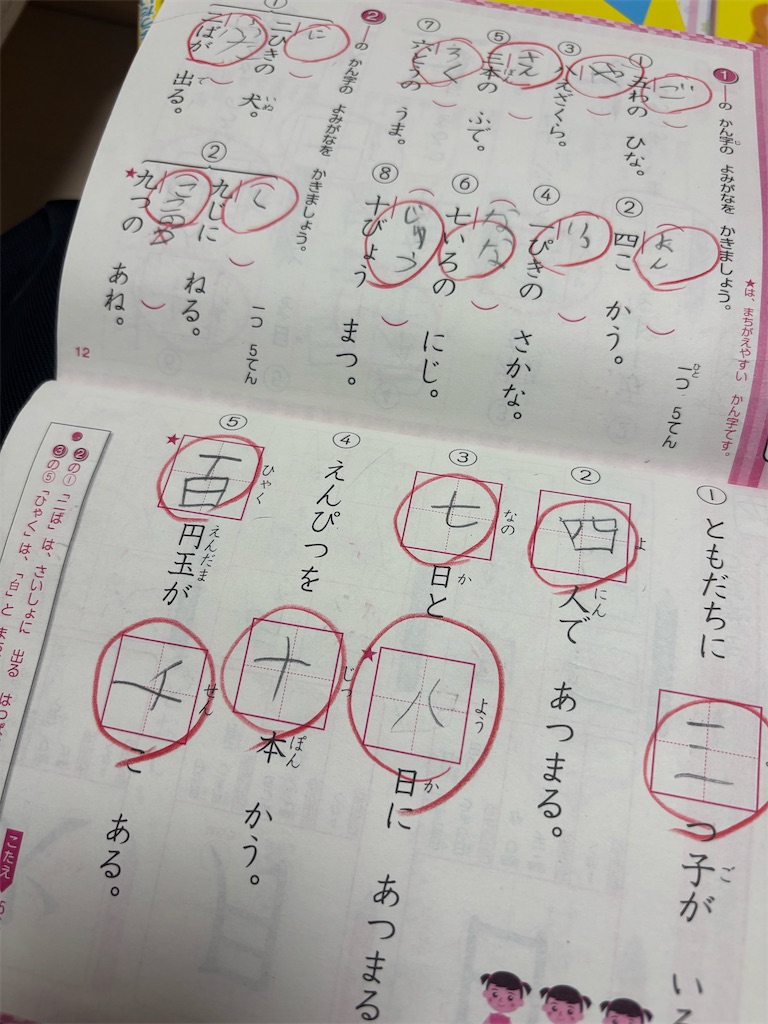 ★は、まちがえやすい かん字です。
1 ―の かん字の よみがなを かきましょう。
一つ 5てん
① ご
五わの ひな。
② よん
四こ かう。
③ や
八えざくら。
④ いっ
一ぴきの さかな。
⑤ さん
三本の ふで。
⑥ なな
七いろの にじ。
⑦ ろく
六とうの うま。
⑧ じゅう
十びょう まつ。
2 ―の かん字の よみがなを かきましょう。
一つ 5てん
① に
二ひきの 犬。
ふた
二ばが 出る。
② く
九じに ねる。
★ ここの
九つの あね。
12
① ともだちに 三つ子が いる
② 四人で あつまる。
③ 七日と ★八日に あつまる
④ えんぴつを 十本 かう。
⑤ ★百円玉が 千こ ある。
❷の① 「二ば」は、さいしょに 出る はっぱ
❸の⑤ 「ひゃく」は、「白」と
こたえ